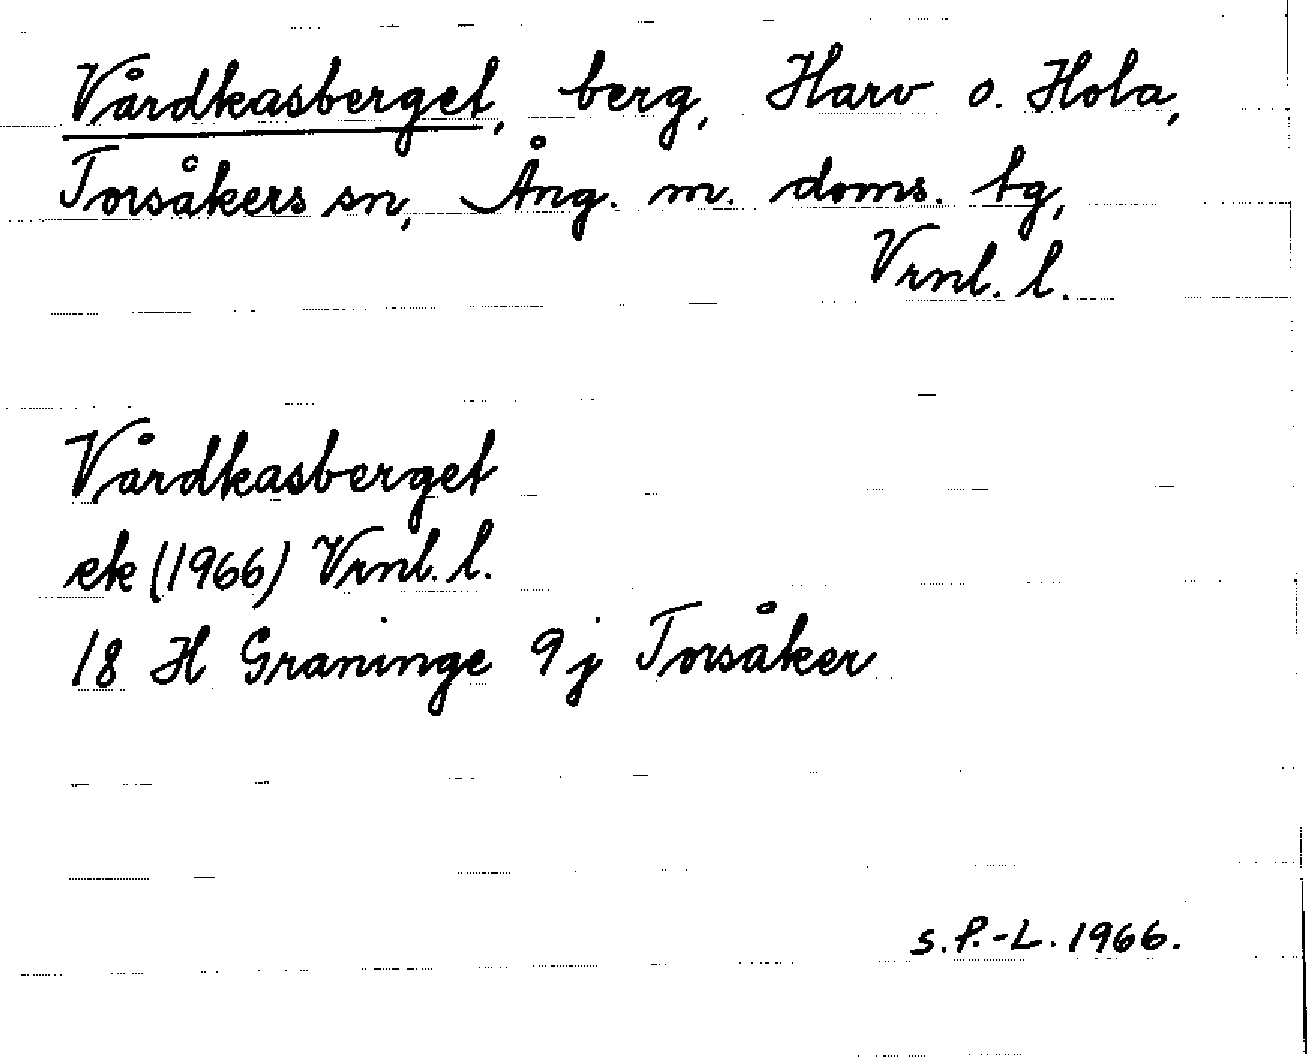 Vårdkasberget, berg, Harv o. Hola,
Torsåkers sn, Ång. m. doms. tg,
Vrnl. l.
Vårdkasberget
ek (1966) Vrnl. l.
18 H Graninge 9 j Torsåker
S. P.-L. 1966.